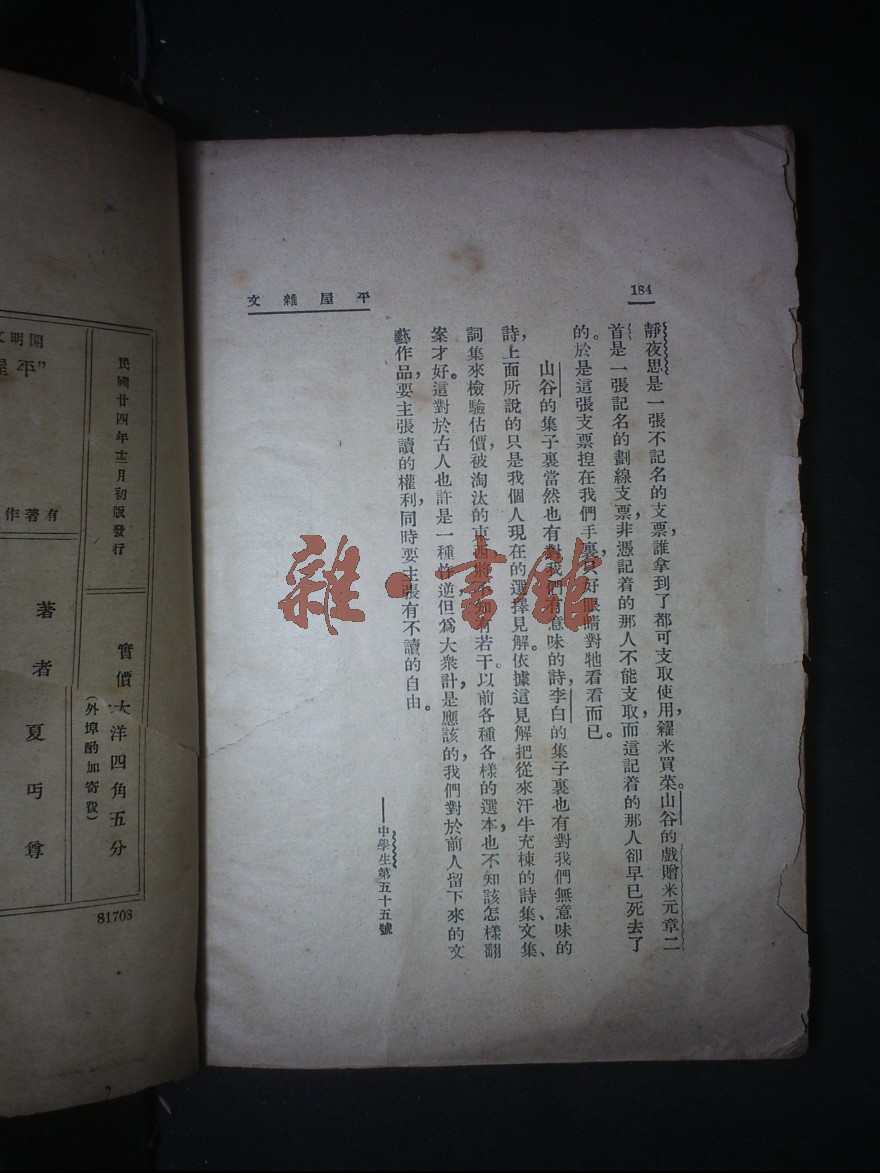 184
平屋雜文
靜夜思是一張不記名的支票，誰拿到了都可支取使用，糴米買菜。山谷的戲贈米元章二
首是一張記名的劃線支票，非憑記着的那人不能支取，而這記着的那人卻早已死去了
的。於是這張支票揑在我們手裏，只好眼睛對牠看看而已。
山谷的集子裏當然也有對我們有意味的詩，李白的集子裏也有對我們無意味的
詩，上面所說的只是我個人現在的選擇見解。依據這見解把從來汗牛充棟的詩集、文集、
詞集來檢驗估價，被淘汰的東西將不知有若干。以前各種各樣的選本也不知該怎樣翻
案才好。這對於古人也許是一種忤逆，但爲大衆計是應該的，我們對於前人留下來的文
藝作品，要主張讀的權利，同時要主張有不讀的自由。
——中學生第五十五號
雜·書館
開明文
“平屋
有著作
民國廿四年十二月初版發行
實價大洋四角五分
（外埠酌加寄費）
著者 夏丏尊
81708